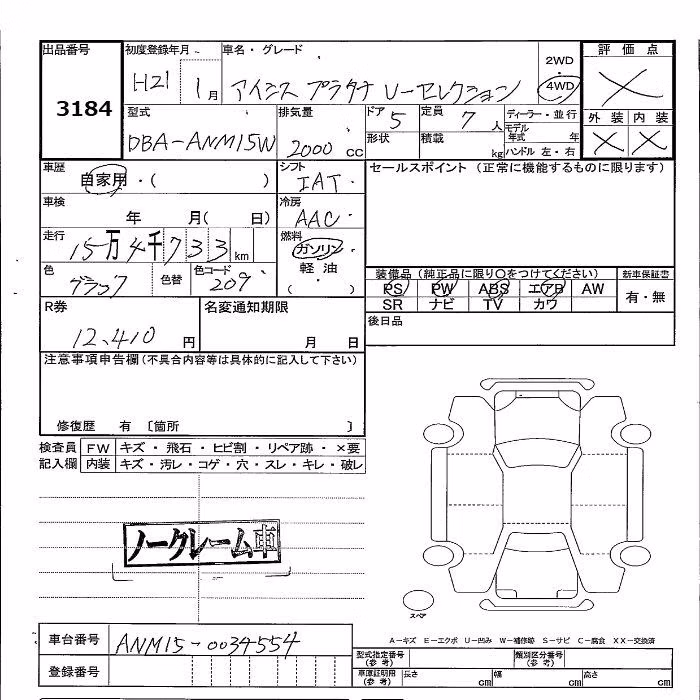 出品番号
3184
初度登録年月
H21 1月
車名・グレード
アイシス プラタナ Uーセレクション
2WD
4WD
評価点
外装 内装
型式
DBA-ANM15W
排気量
2000 cc
ドア 5
形状
定員 7 人
積載 kg
ディーラー・並行
モデル年式 年
ハンドル 左・右
車歴
自家用・( )
シフト
IAT
セールスポイント (正常に機能するものに限ります)
車検
年 月( 日)
冷房
AAC
走行
15万4千733km
燃料
ガソリン
軽油
( )
色
ブラック
色替
色コード
209
装備品 (純正品に限り○をつけてください)
新車保証書
PS PW ABS エアB AW
有・無
SR ナビ TV カワ
R券
12,410 円
名変通知期限
月 日
後日品
注意事項申告欄 (不具合内容等は具体的に記入して下さい)
修復歴 有 〔箇所 〕
検査員記入欄
FW キズ・飛石・ヒビ割・リペア跡・×要
内装 キズ・汚レ・コゲ・穴・スレ・キレ・破レ
ノークレーム車
スペア
A-キズ E-エクボ U-凹み W-補修跡 S-サビ C-腐食 XX-交換済
車台番号
ANM15-0034554
登録番号
型式指定番号(参考)
類別区分番号(参考)
車庫証明用(参考)
長さ cm 幅 cm 高さ cm